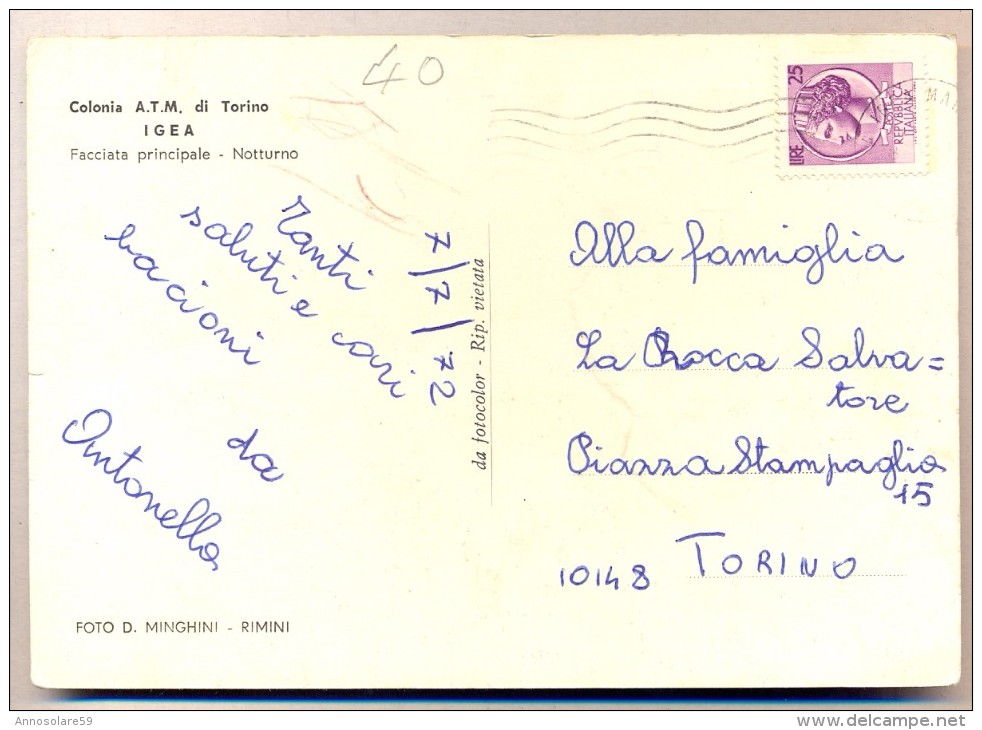 40
Colonia A.T.M. di Torino
IGEA
Facciata principale - Notturno
Tanti
saluti e cari
bacioni
da
Antonella
7/7/72
FOTO D. MINGHINI - RIMINI
da fotocolor - Rip. vietata
LIRE 25
POSTE
REPVBBLICA
ITALIANA
Alla famiglia
La Rocca Salva=
tore
Piazza Stampaglia
15
10148 TORINO
Annosolare59
www.delcampe.net